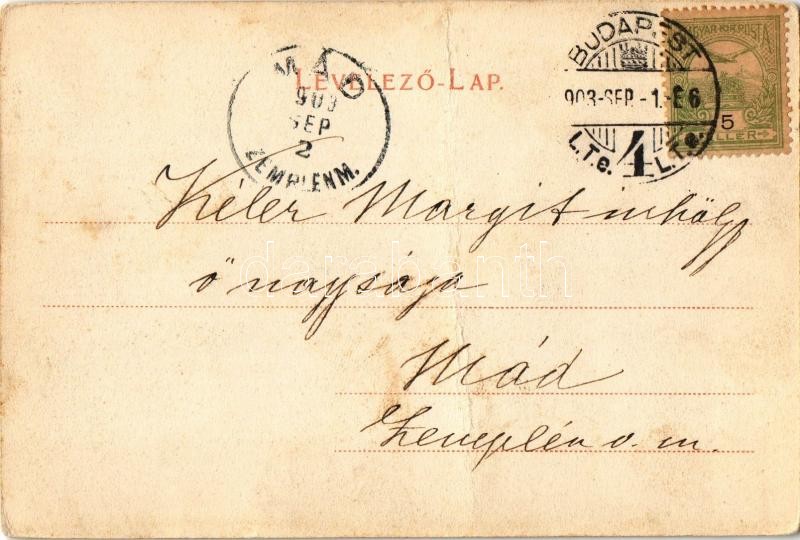 LEVELEZŐ-LAP.
MÁD
903
SEP
2
ZEMPLÉNM.
BUDAPEST
903-SEP.-1.-E6
4
L.T.e. L.T.e.
MAGYAR KIR. POSTA
5
FILLER
Kéler Margit úrhölgy
ő nagysága
Mád
Zemplén v. m.
darabanth